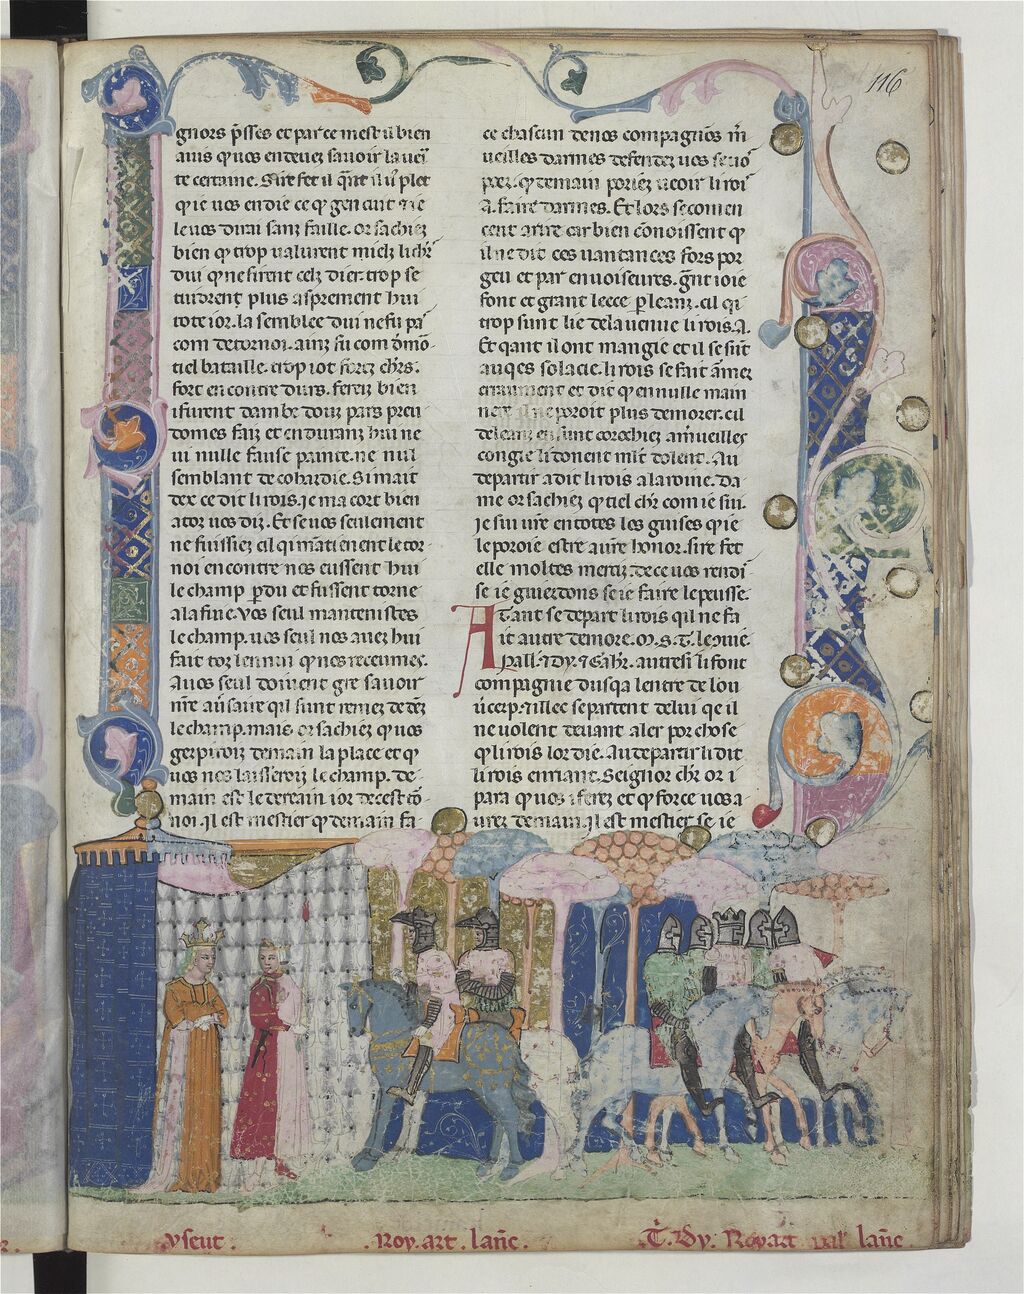 116
gnors p̃sses et par ce mest il bien
auis q̃ uos en deuez sauoir la ueri
te certaine. Sire fet il q̃nt il ṽ plet
q̃ ie uos en die ce q̃ gen ai
le uos dirai sanz faille. or sachiez
bien q̃ trop ualurent mielz li ch̃r
dui q̃ ne firent celz dier. trop se
tindrent plus asprement hui
tote ior. la semblee dui ne fu pas
com de tornoi. ainz fu com õmo
tiel bataille. trop iot forz ch̃rs.
fort encontre durs. feru bien
issirent dambe douz pars preu
domes faiz et enduranz hui ne
ui nulle fause painte. ne nul
semblant de cohardie. Si mait
dex ce dit li rois. ie ma cort bien
a tor uos diz. Et se uos seulement
ne fuissiez cil qi maintienent le tor
noi encontre nos eussent hui
le champ p̱du et fussent torne
a la fine. Vos seul mantenistes
le champ. uos seul nos auez hui
fait tot lennui q̃ nos receumes.
A uos seul doiuent gre sauoir
nr̃e au᷑saire qil sunt remez de dez
le champ. mais or sachiez q̃ uos
gerpiroiz demain la place et q̃
uos nos laisseroiz le champ. de
main est le derrain ior de cest to
noi. Il est mestier q̃ demain fa
ce chascun de nos compagnõs m̃
ueilles darmes defendez uos se uos
poez. q̃ demain poriez ueoir li roi
A. faire darmes. Et lors se comen
cent a rire car bien cõnoissent q̃
il ne dit ces uantances fors por
geu et par enuoiseures. g̃nt ioie
font et grant leece p̱ leanz. cil qi
trop sunt lie de la uenue li rois. A.
Et qant il ont mangie et il se sũt
auqes solacie. li rois se fait amer
erraument et dit q̃ en nulle main
nere il ne poroit plus demorer. cil
de leanz en sunt corochiez a m̃ueilles
congie li donent ml̃t dolent. Au
departir a dit li rois a la roine. Da
me or sachiez q̃ tiel ch̃r com ie sui.
ie sui ur̃e en totes les guises q̃ ie
le poroie estre a ur̃e honor. sire fet
elle moltes merciz de ce uos rendi
se ie guierdons se ie faire le peusse.
Atant se depart li rois qil ne fa
it autre demore. M. S. T. le mie.
Pall. 7 Dy. 7 Gahr. autresi li font
compagnie dusqa lentre de lou
u᷑cerp. 7 illec se partent de lui qe il
ne uolent deuant aler por chose
q̃ li rois lor die. Au departir li dit
li rois en riant. Seignor ch̃r or i
para q̃ uos i ferez et q̃ force uos a
urez demain. Il est mestier se ie
yseut.
Roy. art. lanc̃.
T. Dy. Roy art pal lanc̃